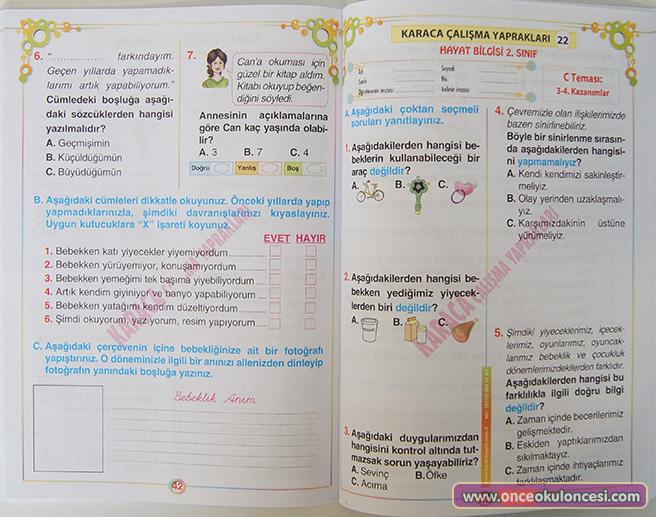 6. “................. farkındayım.
Geçen yıllarda yapamadık-
larımı artık yapabiliyorum.”
Cümledeki boşluğa aşağı-
daki sözcüklerden hangisi
yazılmalıdır?
A. Geçmişimin
B. Küçüldüğümün
C. Büyüdüğümün
7.
Can'a okuması için
güzel bir kitap aldım.
Kitabı okuyup beğen-
diğini söyledi.
Annesinin açıklamalarına
göre Can kaç yaşında olabi-
lir?
A. 3 B. 7 C. 4
Doğru Yanlış Boş
B. Aşağıdaki cümleleri dikkatle okuyunuz. Önceki yıllarda yapıp
yapmadıklarınızla, şimdiki davranışlarınızı kıyaslayınız.
Uygun kutucuklara “X” işareti koyunuz.
EVET HAYIR
1. Bebekken katı yiyecekler yiyemiyordum
2. Bebekken yürüyemiyor, konuşamıyordum
3. Bebekken yemeğimi tek başıma yiyebiliyordum
4. Artık kendim giyiniyor ve banyo yapabiliyorum
5. Bebekken yatağımı kendim düzeltiyordum
6. Şimdi okuyorum, yazıyorum, resim yapıyorum
C. Aşağıdaki çerçevenin içine bebekliğinize ait bir fotoğrafı
yapıştırınız. O döneminizle ilgili bir anınızı ailenizden dinleyip
fotoğrafın yanındaki boşluğa yazınız.
Bebeklik Anım
42
KARACA ÇALIŞMA YAPRAKLARI
KARACA ÇALIŞMA YAPRAKLARI 22
HAYAT BİLGİSİ 2. SINIF
Adı Soyadı
Sınıfı No
Öğretmenin imzası Velinin imzası
C Teması:
3-4. Kazanımlar
A. Aşağıdaki çoktan seçmeli
soruları yanıtlayınız.
1. Aşağıdakilerden hangisi be-
beklerin kullanabileceği bir
araç değildir?
A. B. C.
2. Aşağıdakilerden hangisi be-
bekken yediğimiz yiyecek-
lerden biri değildir?
A. B. C.
3. Aşağıdaki duygularımızdan
hangisini kontrol altında tut-
mazsak sorun yaşayabiliriz?
A. Sevinç B. Öfke
C. Acıma
4. Çevremizle olan ilişkilerimizde
bazen sinirlinebiliriz.
Böyle bir sinirlenme sırasın-
da aşağıdakilerden hangisi-
ni yapmamalıyız?
A. Kendi kendimizi sakinleştir-
meliyiz.
B. Olay yerinden uzaklaşmalı-
yız.
C. Karşımızdakinin üstüne
yürümeliyiz.
5. Şimdiki yiyeceklerimiz, içecek-
lerimiz, oyunlarımız, oyuncak-
larımız bebeklik ve çocukluk
dönemlerimizdekilerden farklıdır.
Aşağıdakilerden hangisi bu
farklılıkla ilgili doğru bilgi
değildir?
A. Zaman içinde becerilerimiz
gelişmektedir.
B. Eskiden yaptıklarımızdan
sıkılmaktayız.
C. Zaman içinde ihtiyaçlarımız
farklılaşmaktadır.
KARACA ÇALIŞMA YAPRAKLARI
www.onceokuloncesi.com